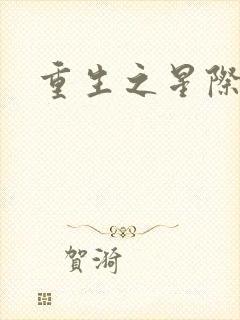 重生之星際
賀漪